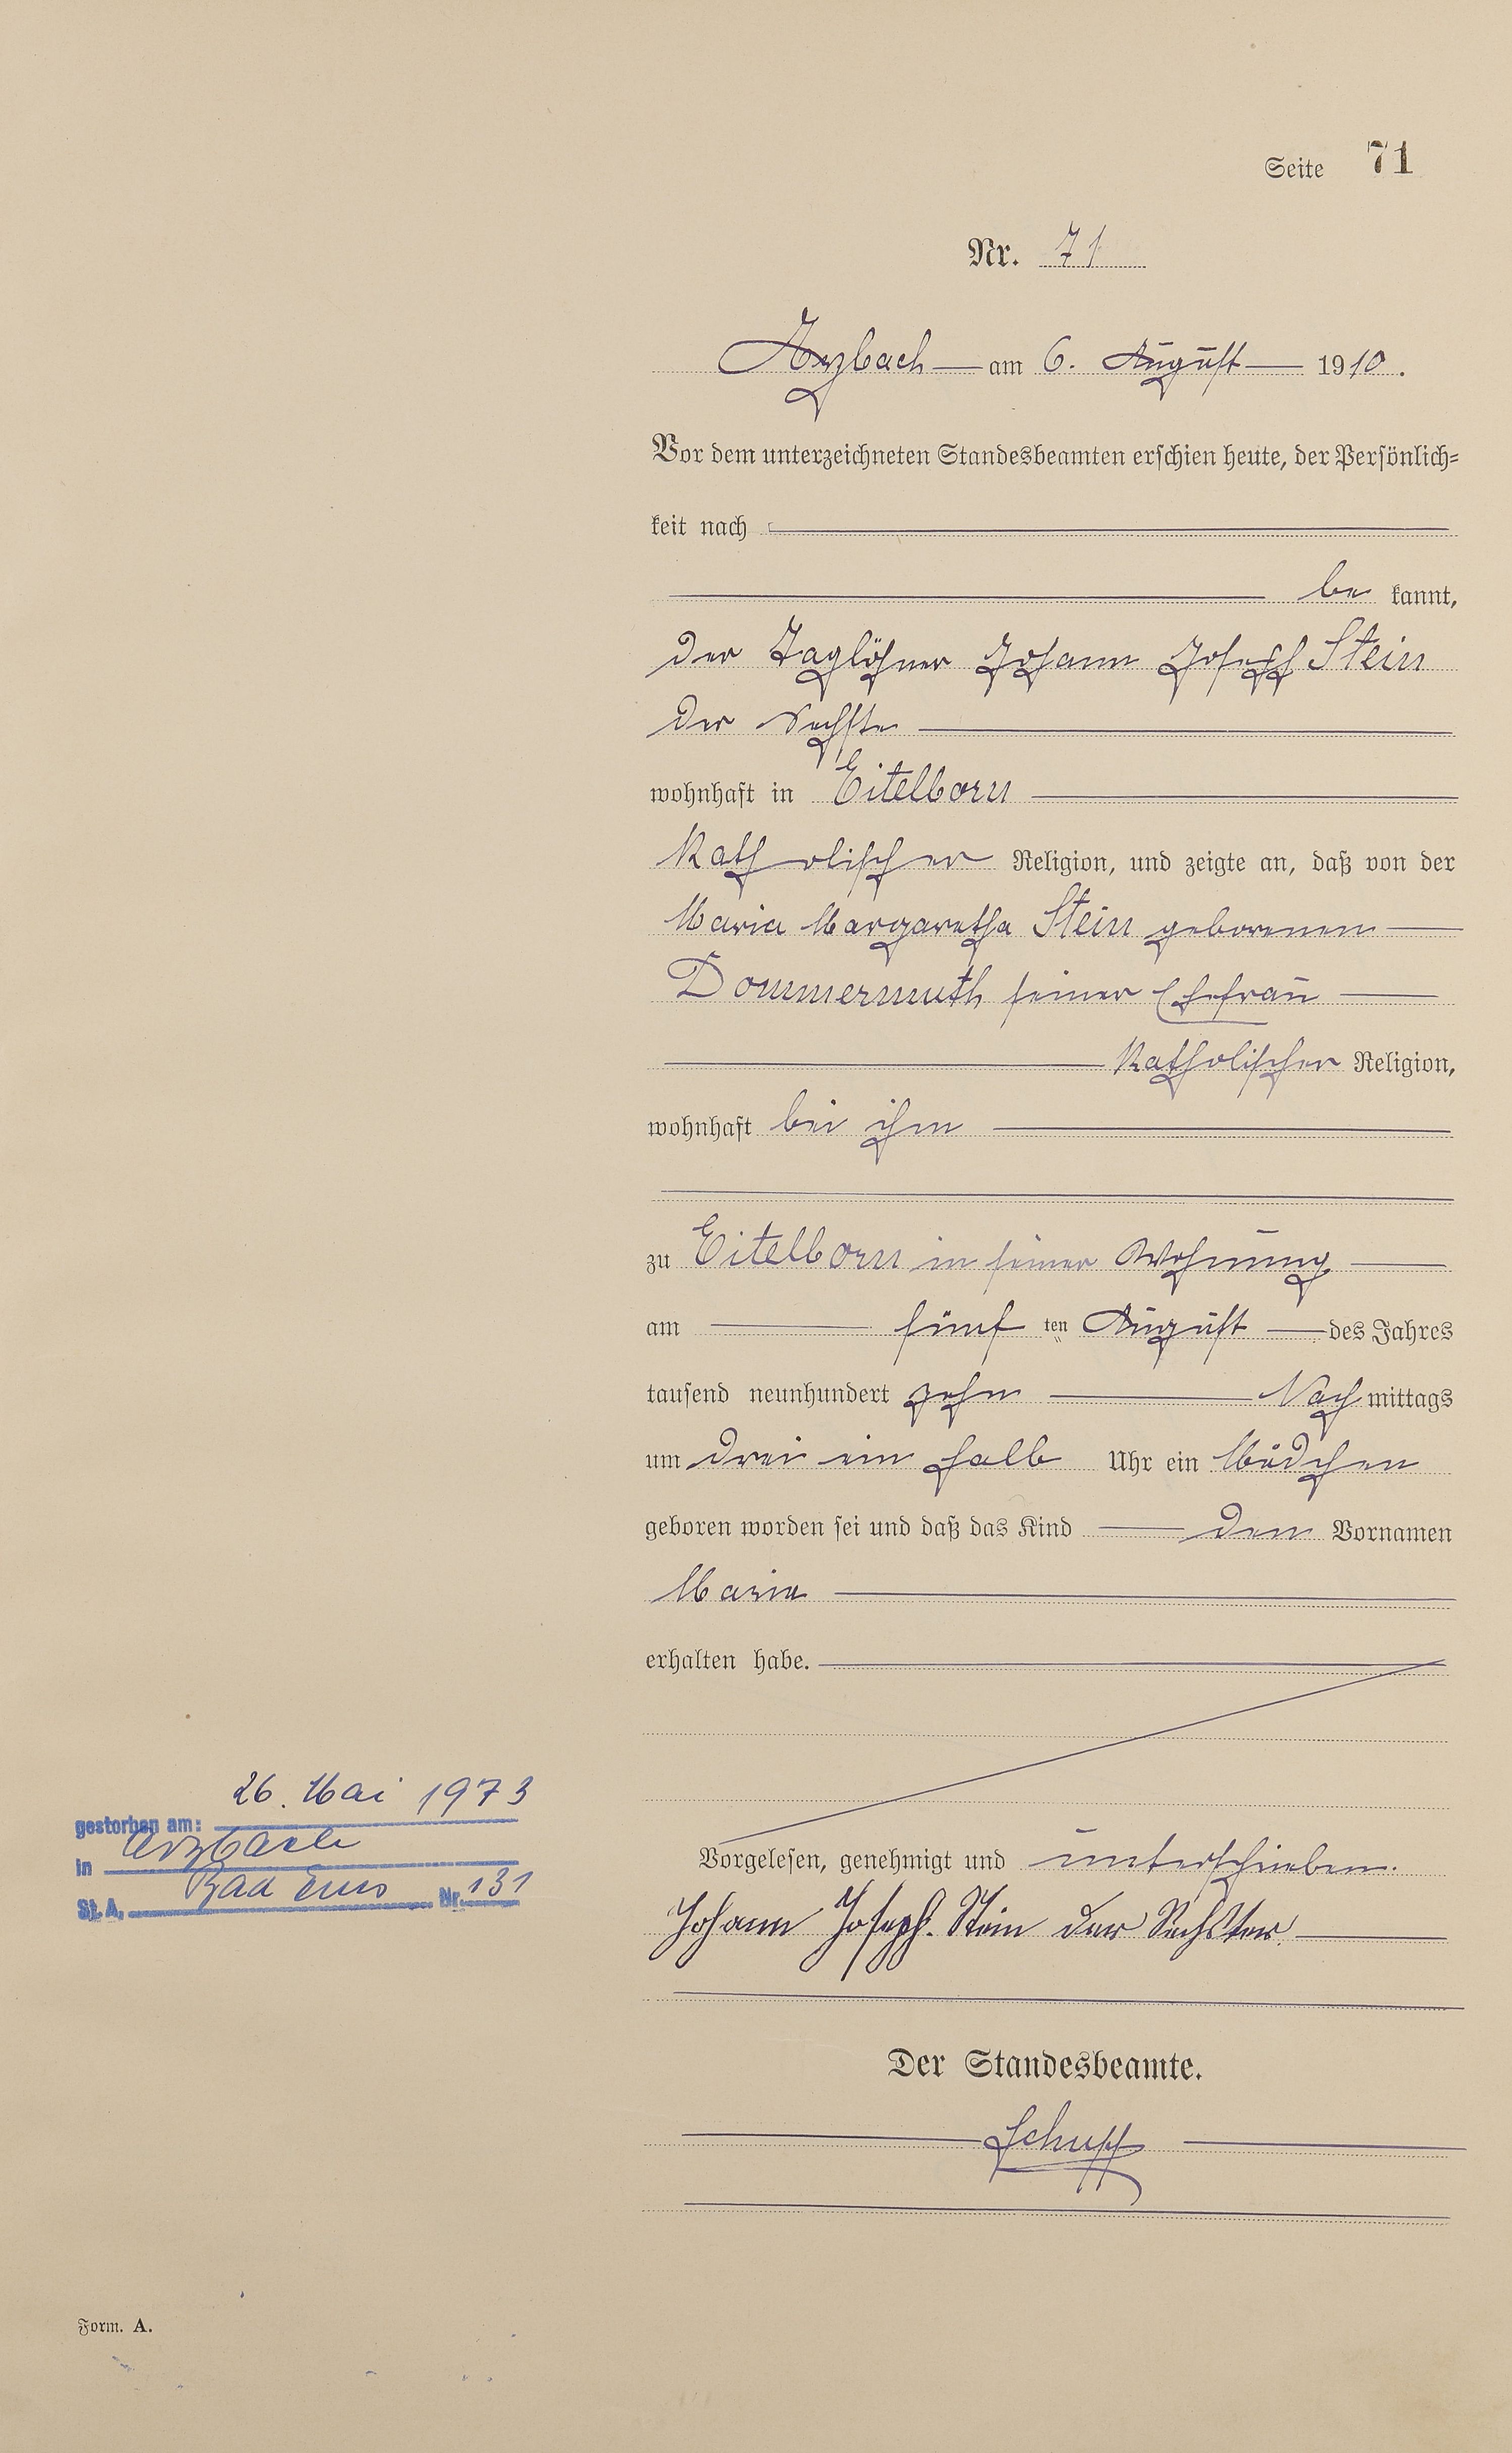 Seite 71
Nr. 71
Arzbach — am 6. August — 1910.
Vor dem unterzeichneten Standesbeamten erschien heute, der Persönlich-
keit nach
be kannt,
der Taglöhner Johann Joseph Stein
der Sechste
wohnhaft in Eitelborn
katholischer Religion, und zeigte an, daß von der
Maria Margaretha Stein geborenen
Dommermuth seiner Ehefrau
katholischer Religion,
wohnhaft bei ihm
zu Eitelborn in seiner Wohnung
am fünf ten August des Jahres
tausend neunhundert zehn Nach mittags
um drei ein halb Uhr ein Mädchen
geboren worden sei und daß das Kind den Vornamen
Maria
erhalten habe.
Vorgelesen, genehmigt und unterschrieben.
Johann Joseph. Stein der Sechster
Der Standesbeamte.
Schupp
gestorben am: 26. Mai 1973
in Arzbach
St. A. Bad Ems Nr. 131
Form. A.